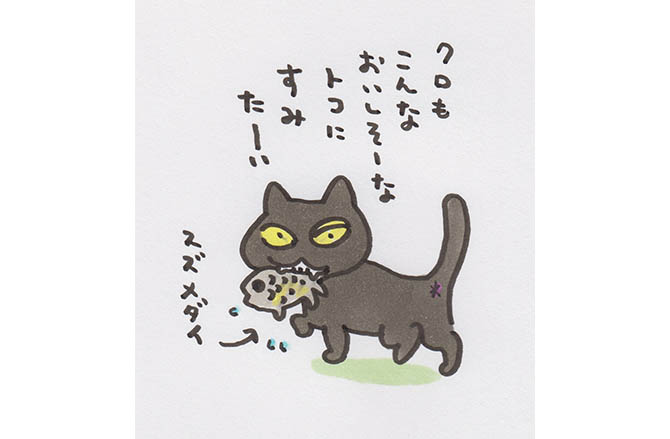 クロも
こんな
おいしそーな
トコに
すみ
たーい
スズメダイ